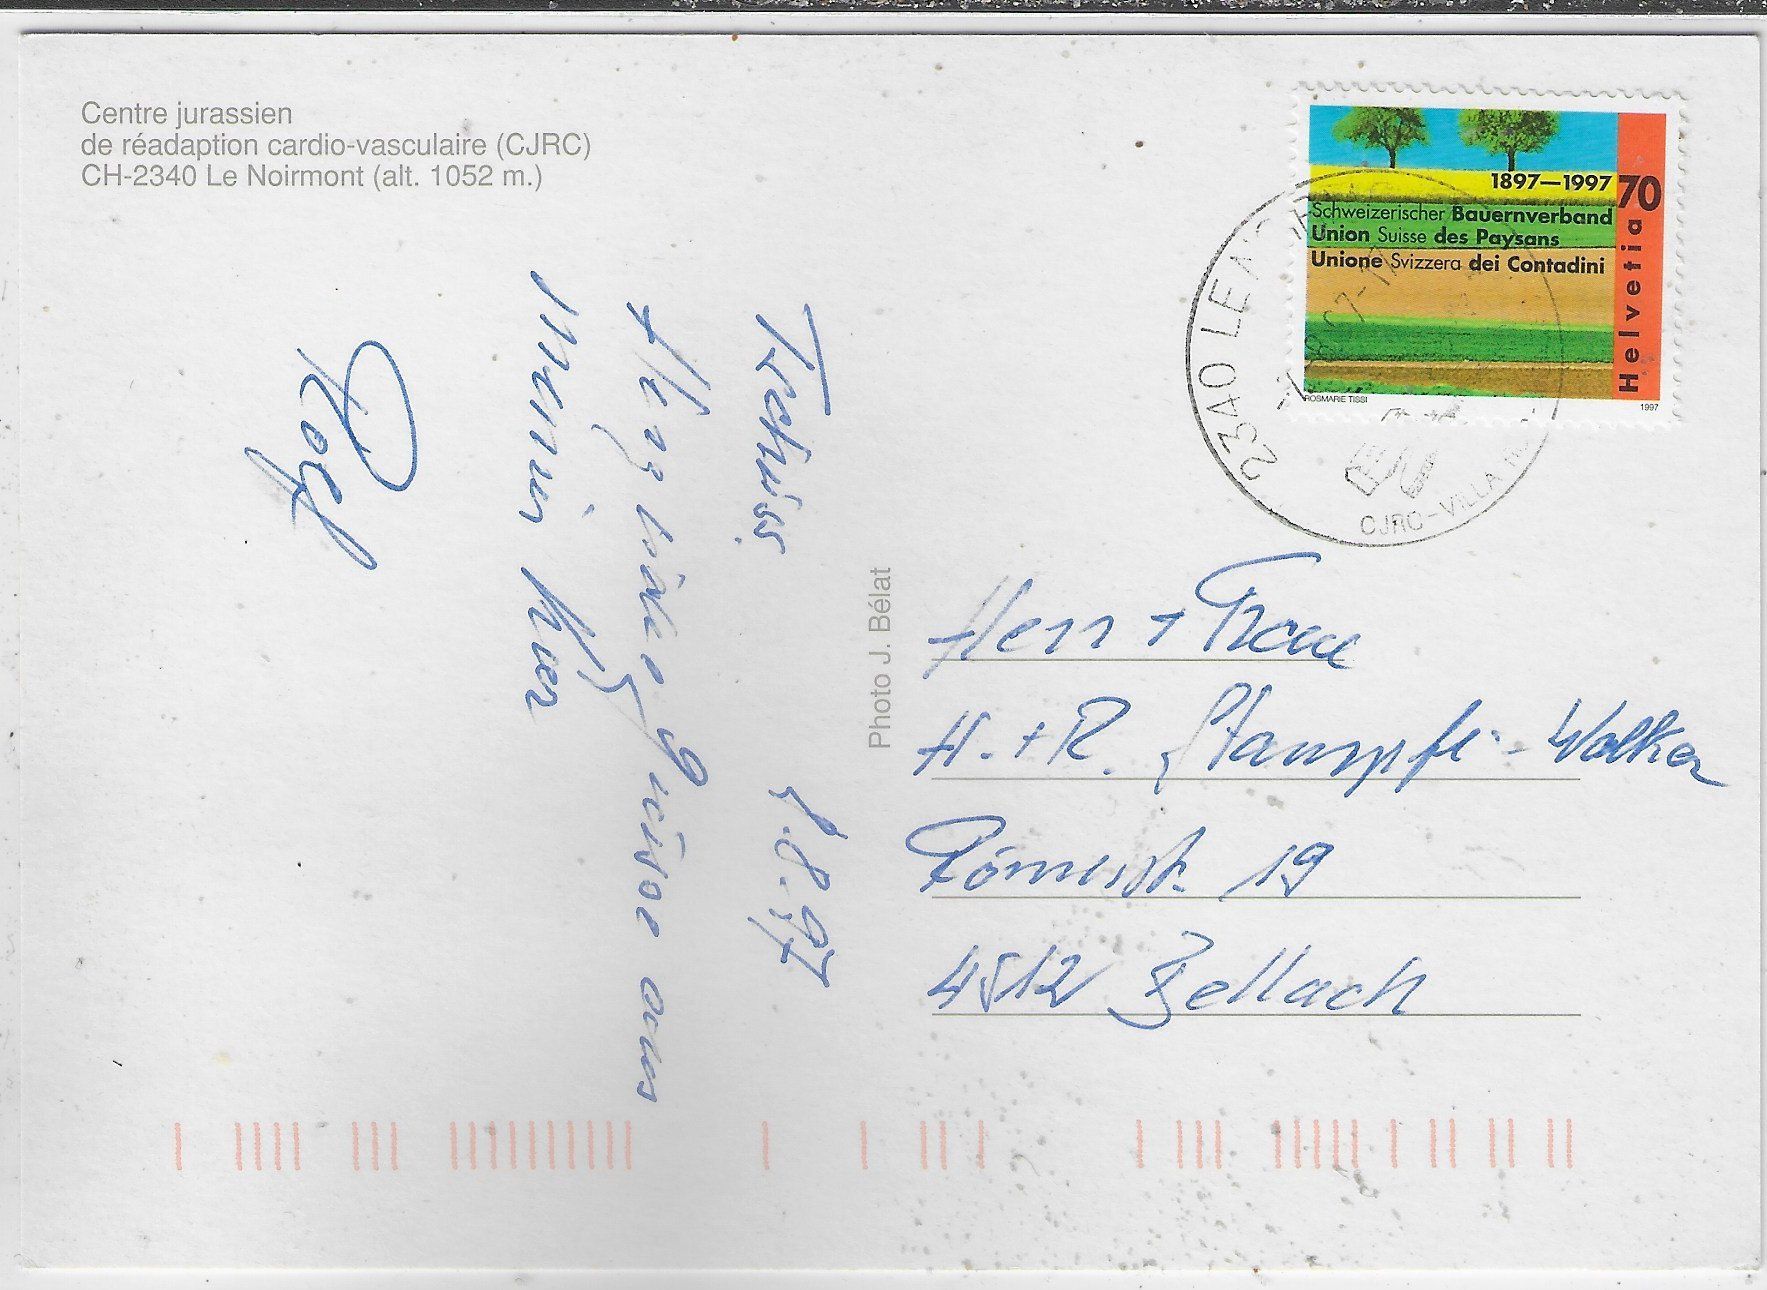 Centre jurassien
de réadaption cardio-vasculaire (CJRC)
CH-2340 Le Noirmont (alt. 1052 m.)
1897—1997
70
Schweizerischer Bauernverband
Union Suisse des Paysans
Unione Svizzera dei Contadini
Helvetia
ROSMARIE TISSI
1997
2340 LE NOIRMONT
CJRC-VILLA
8.97
Herzliche Grüsse aus
meiner Kur
Rolf
Photo J. Bélat
Herr + Frau
H. + R. Stampfli-Walker
Römerstr. 19
4512 Bellach